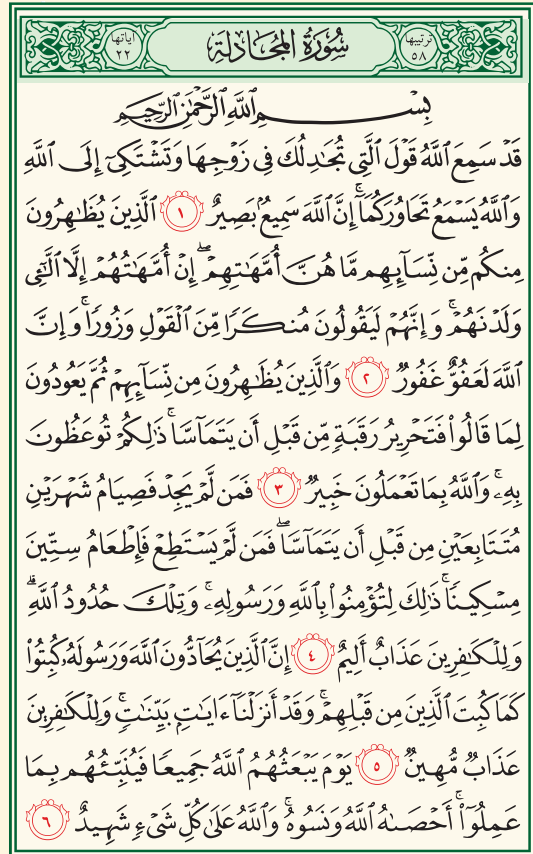 ترتيبها ٥٨ سُورَةُ المُجَادلَة اياتها ٢٢
بِسۡمِ ٱللَّهِ ٱلرَّحۡمَٰنِ ٱلرَّحِيمِ
قَدۡ سَمِعَ ٱللَّهُ قَوۡلَ ٱلَّتِي تُجَٰدِلُكَ فِي زَوۡجِهَا وَتَشۡتَكِيٓ إِلَى ٱللَّهِ
وَٱللَّهُ يَسۡمَعُ تَحَاوُرَكُمَآۚ إِنَّ ٱللَّهَ سَمِيعُۢ بَصِيرٌ ١ ٱلَّذِينَ يُظَٰهِرُونَ
مِنكُم مِّن نِّسَآئِهِم مَّا هُنَّ أُمَّهَٰتِهِمۡۖ إِنۡ أُمَّهَٰتُهُمۡ إِلَّا ٱلَّٰٓـِٔي
وَلَدۡنَهُمۡۚ وَإِنَّهُمۡ لَيَقُولُونَ مُنكَرٗا مِّنَ ٱلۡقَوۡلِ وَزُورٗاۚ وَإِنَّ
ٱللَّهَ لَعَفُوٌّ غَفُورٞ ٢ وَٱلَّذِينَ يُظَٰهِرُونَ مِن نِّسَآئِهِمۡ ثُمَّ يَعُودُونَ
لِمَا قَالُواْ فَتَحۡرِيرُ رَقَبَةٖ مِّن قَبۡلِ أَن يَتَمَآسَّاۚ ذَٰلِكُمۡ تُوعَظُونَ
بِهِۦۚ وَٱللَّهُ بِمَا تَعۡمَلُونَ خَبِيرٞ ٣ فَمَن لَّمۡ يَجِدۡ فَصِيَامُ شَهۡرَيۡنِ
مُتَتَابِعَيۡنِ مِن قَبۡلِ أَن يَتَمَآسَّاۖ فَمَن لَّمۡ يَسۡتَطِعۡ فَإِطۡعَامُ سِتِّينَ
مِسۡكِينٗاۚ ذَٰلِكَ لِتُؤۡمِنُواْ بِٱللَّهِ وَرَسُولِهِۦۚ وَتِلۡكَ حُدُودُ ٱللَّهِۗ
وَلِلۡكَٰفِرِينَ عَذَابٌ أَلِيمٌ ٤ إِنَّ ٱلَّذِينَ يُحَآدُّونَ ٱللَّهَ وَرَسُولَهُۥ كُبِتُواْ
كَمَا كُبِتَ ٱلَّذِينَ مِن قَبۡلِهِمۡۚ وَقَدۡ أَنزَلۡنَآ ءَايَٰتِۭ بَيِّنَٰتٖۚ وَلِلۡكَٰفِرِينَ
عَذَابٞ مُّهِينٞ ٥ يَوۡمَ يَبۡعَثُهُمُ ٱللَّهُ جَمِيعٗا فَيُنَبِّئُهُم بِمَا
عَمِلُوٓاْۚ أَحۡصَىٰهُ ٱللَّهُ وَنَسُوهُۚ وَٱللَّهُ عَلَىٰ كُلِّ شَيۡءٖ شَهِيدٌ ٦